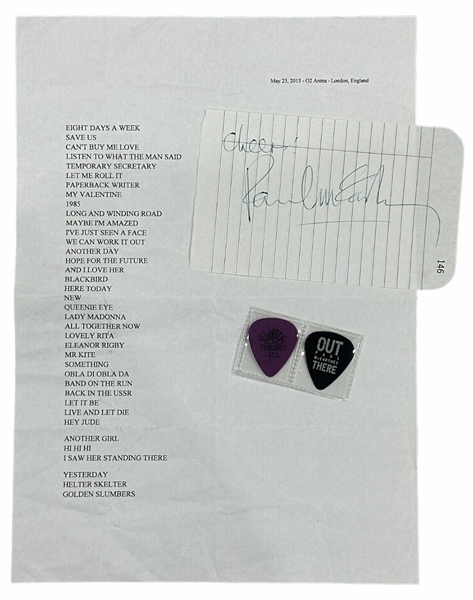 May 23, 2015 - O2 Arena - London, England
EIGHT DAYS A WEEK
SAVE US
CAN'T BUY ME LOVE
LISTEN TO WHAT THE MAN SAID
TEMPORARY SECRETARY
LET ME ROLL IT
PAPERBACK WRITER
MY VALENTINE
1985
LONG AND WINDING ROAD
MAYBE I'M AMAZED
I'VE JUST SEEN A FACE
WE CAN WORK IT OUT
ANOTHER DAY
HOPE FOR THE FUTURE
AND I LOVE HER
BLACKBIRD
HERE TODAY
NEW
QUEENIE EYE
LADY MADONNA
ALL TOGETHER NOW
LOVELY RITA
ELEANOR RIGBY
MR KITE
SOMETHING
OBLA DI OBLA DA
BAND ON THE RUN
BACK IN THE USSR
LET IT BE
LIVE AND LET DIE
HEY JUDE
ANOTHER GIRL
HI HI HI
I SAW HER STANDING THERE
YESTERDAY
HELTER SKELTER
GOLDEN SLUMBERS
cheers!
Paul McCartney
146
OUT
PAUL
McCARTNEY
THERE